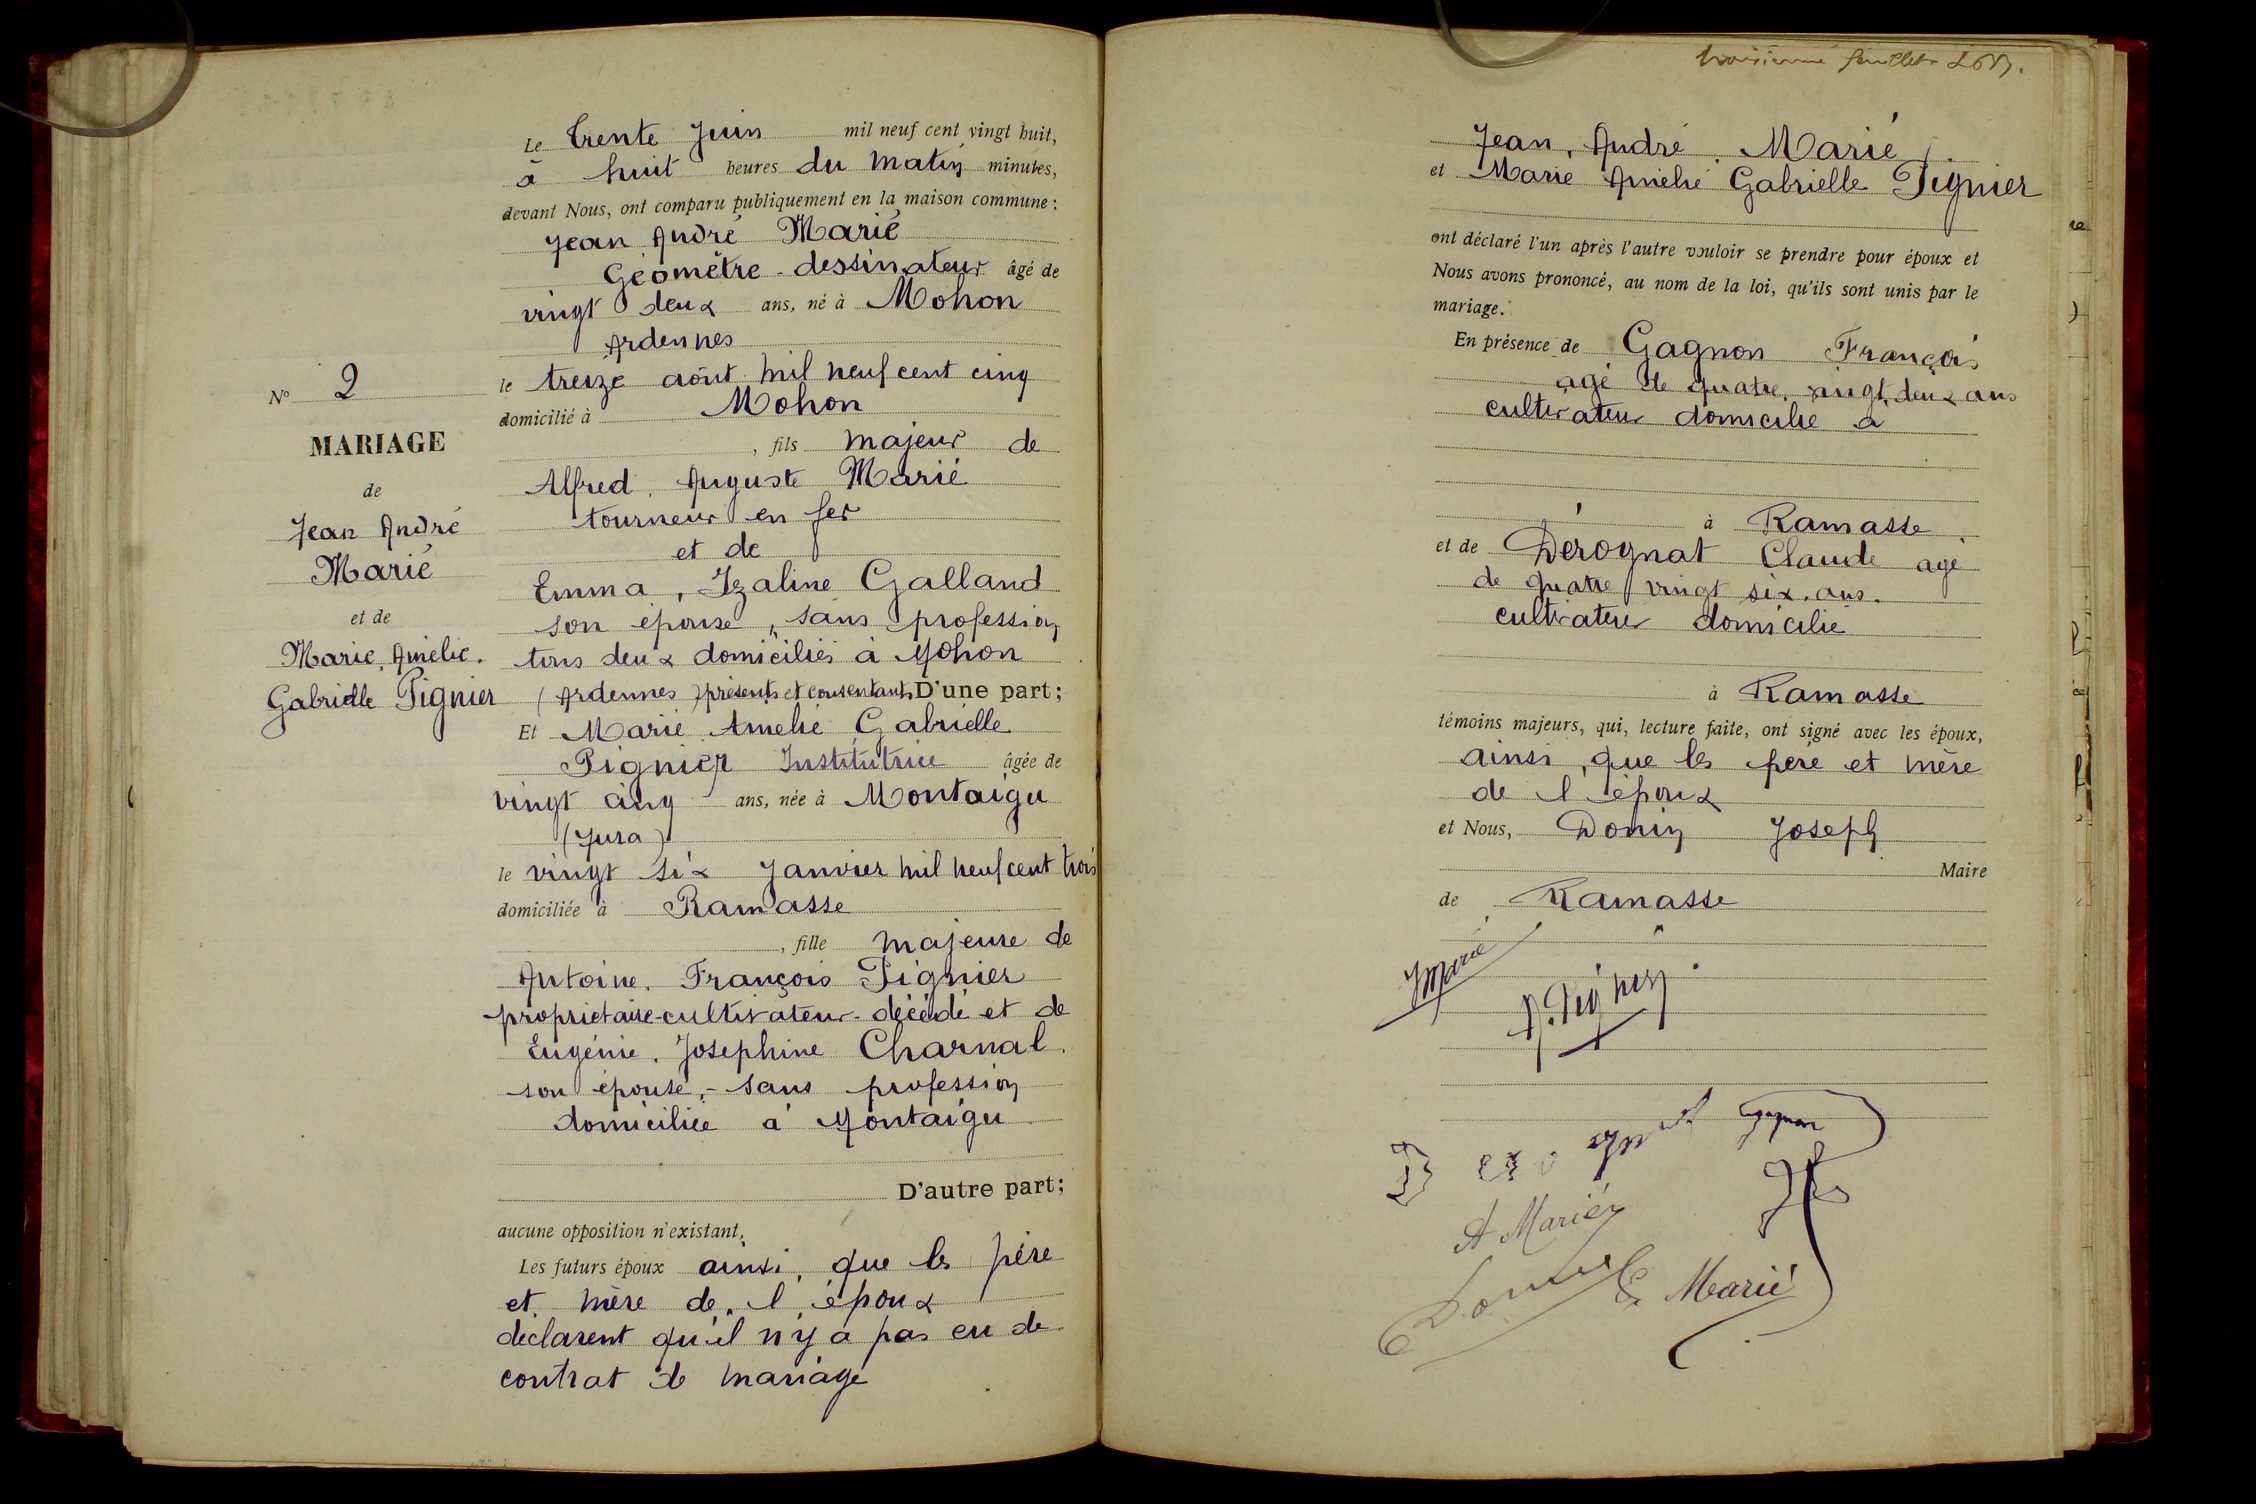 Le Trente Juin mil neuf cent vingt huit,
à huit heures du matin minutes,
devant Nous, ont comparu publiquement en la maison commune :
Jean André Marié
Géomètre-dessinateur âgé de
vingt deux ans, né à Mohon
Ardennes
le treize août mil neuf cent cinq
domicilié à Mohon
, fils majeur de
Alfred, Auguste Marié
tourneur en fer
et de
Emma, Izaline Galland
son épouse, sans profession
tous deux domiciliés à Mohon
(Ardennes) présents et consentants D'une part ;
Et Marie Amelie Gabrielle
Pignier Institutrice âgée de
vingt cinq ans, née à Montaigu
(Jura)
le vingt six Janvier mil neuf cent trois
domiciliée à Ramasse
, fille majeure de
Antoine. François Pignier
propriétaire-cultivateur-décédé et de
Eugénie. Josephine Charnal.
son épouse,- sans profession
domiciliée à Montaigu
D'autre part ;
aucune opposition n'existant,
Les futurs époux ainsi, que les père
et mère de l'époux
déclarent qu'il n'y a pas eu de
contrat de mariage
N° 2
MARIAGE
de
Jean André
Marié
et de
Marie, Amélie.
Gabrielle Pignier
troisième feuillet
Jean, André Marié
et Marie Amélie Gabrielle Pignier
ont déclaré l'un après l'autre vouloir se prendre pour époux et
Nous avons prononcé, au nom de la loi, qu'ils sont unis par le
mariage.
En présence de Gagnon François
agé de quatre. vingt. deux ans
cultivateur domicilié à
à Ramasse
et de Derognat Claude agé
de quatre vingt six. ans.
cultivateur domicilié
à Ramasse
témoins majeurs, qui, lecture faite, ont signé avec les époux,
ainsi, que les père et mère
de l'époux
et Nous, Donin Joseph
Maire
de Ramasse
JMarié
A. Pignier
Gagnon
A Marié
Donin
E. Marié